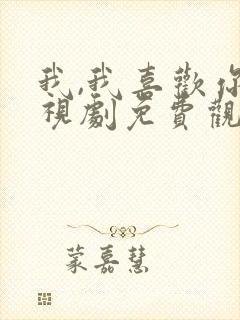 我,我喜歡你
視劇免費觀
蒙嘉慧